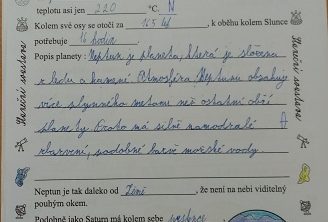 teplotu asi jen 220 °C. N
Kolem své osy se otočí za 165 let, k oběhu kolem Slunce
potřebuje 16 hodin.
Popis planety: Neptun je planeta, která je složena
z ledu a kamení. Atmosféra Neptunu obsahuje
více plynného metanu než ostatní obří
planety. Proto má silně namodralé A
zbarvení, podobné barvě mořské vody.
Neptun je tak daleko od Země, že není na nebi viditelný
pouhým okem.
Podobně jako Saturn má kolem sebe prstence